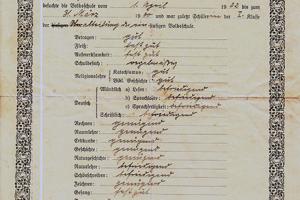 besuchte die Volksschule vom 1. April 1922 bis zum
31. März und war zuletzt Schülerin der 2. Klasse
der Volksschule.
Betragen: gut
Fleiß: fast gut
Aufmerksamkeit: fast gut
Schulbesuch: regelmäßig
Religionslehre Katechismus: gut
Bibl. Geschichte: gut
Deutsch Mündlich a) Lesen: befriedigend
b) Sprachlehre: befriedigend
c) Sprachfertigkeit: befriedigend
Schriftlich: befriedigend
Rechnen: genügend
Raumlehre: genügend
Erdkunde: genügend
Geschichte: genügend
Naturgeschichte: genügend
Naturlehre: befriedigend
Schönschreiben: befriedigend
Zeichnen: genügend
Gesang: fast gut